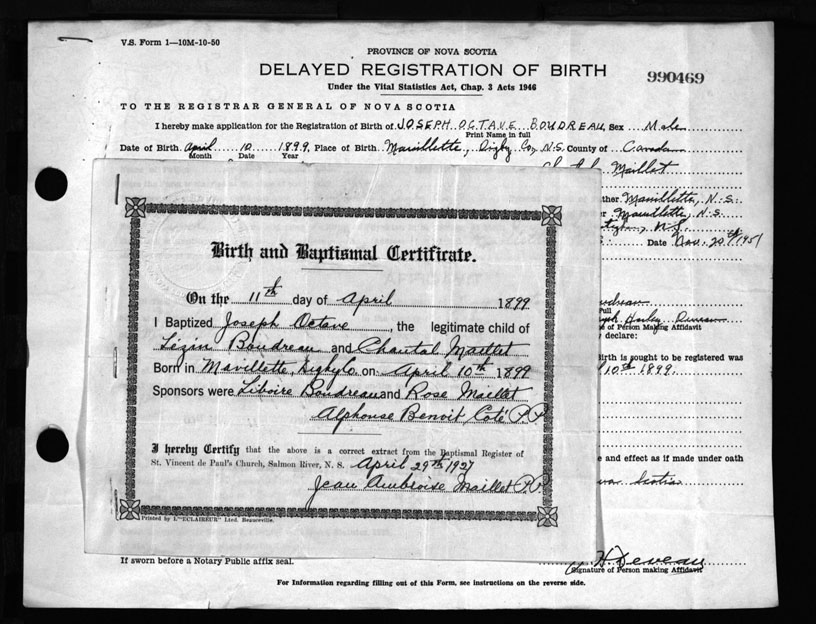 V.S. Form 1—10M-10-50
PROVINCE OF NOVA SCOTIA
DELAYED REGISTRATION OF BIRTH
990469
Under the Vital Statistics Act, Chap. 3 Acts 1946
TO THE REGISTRAR GENERAL OF NOVA SCOTIA
I hereby make application for the Registration of Birth of JOSEPH OCTAVE BOUDREAU, Sex Male
Print Name in full
Date of Birth April 10 1899, Place of Birth Mavillette, Digby Co, N.S. County of Canada
Month Date Year
Maillet
ther Mavillette, N.S.
r Mavillette, N.S.
N.S.
Date Nov. 20th/1951
Birth and Baptismal Certificate.
On the 11th day of April 1899
I Baptized Joseph Octave, the legitimate child of
Lézin Boudreau and Chantal Maillet
Born in Mavillette, Digby Co. on April 10th 1899
Sponsors were Liboire Boudreau and Rose Maillet
Alphonse Benoit Coté P.P.
I hereby Certify that the above is a correct extract from the Baptismal Register of
St. Vincent de Paul's Church, Salmon River, N. S. April 29th 1927
Jean Ambroise Maillet P.P.
Printed by L'"ECLAIREUR" Ltd. Beauceville.
udreau
Full
of Person Making Affidavit
y declare:
Birth is sought to be registered was
10th 1899.
e and effect as if made under oath
Scotia
If sworn before a Notary Public affix seal.
H Deveau
Signature of Person making Affidavit
For Information regarding filling out of this Form, see instructions on the reverse side.